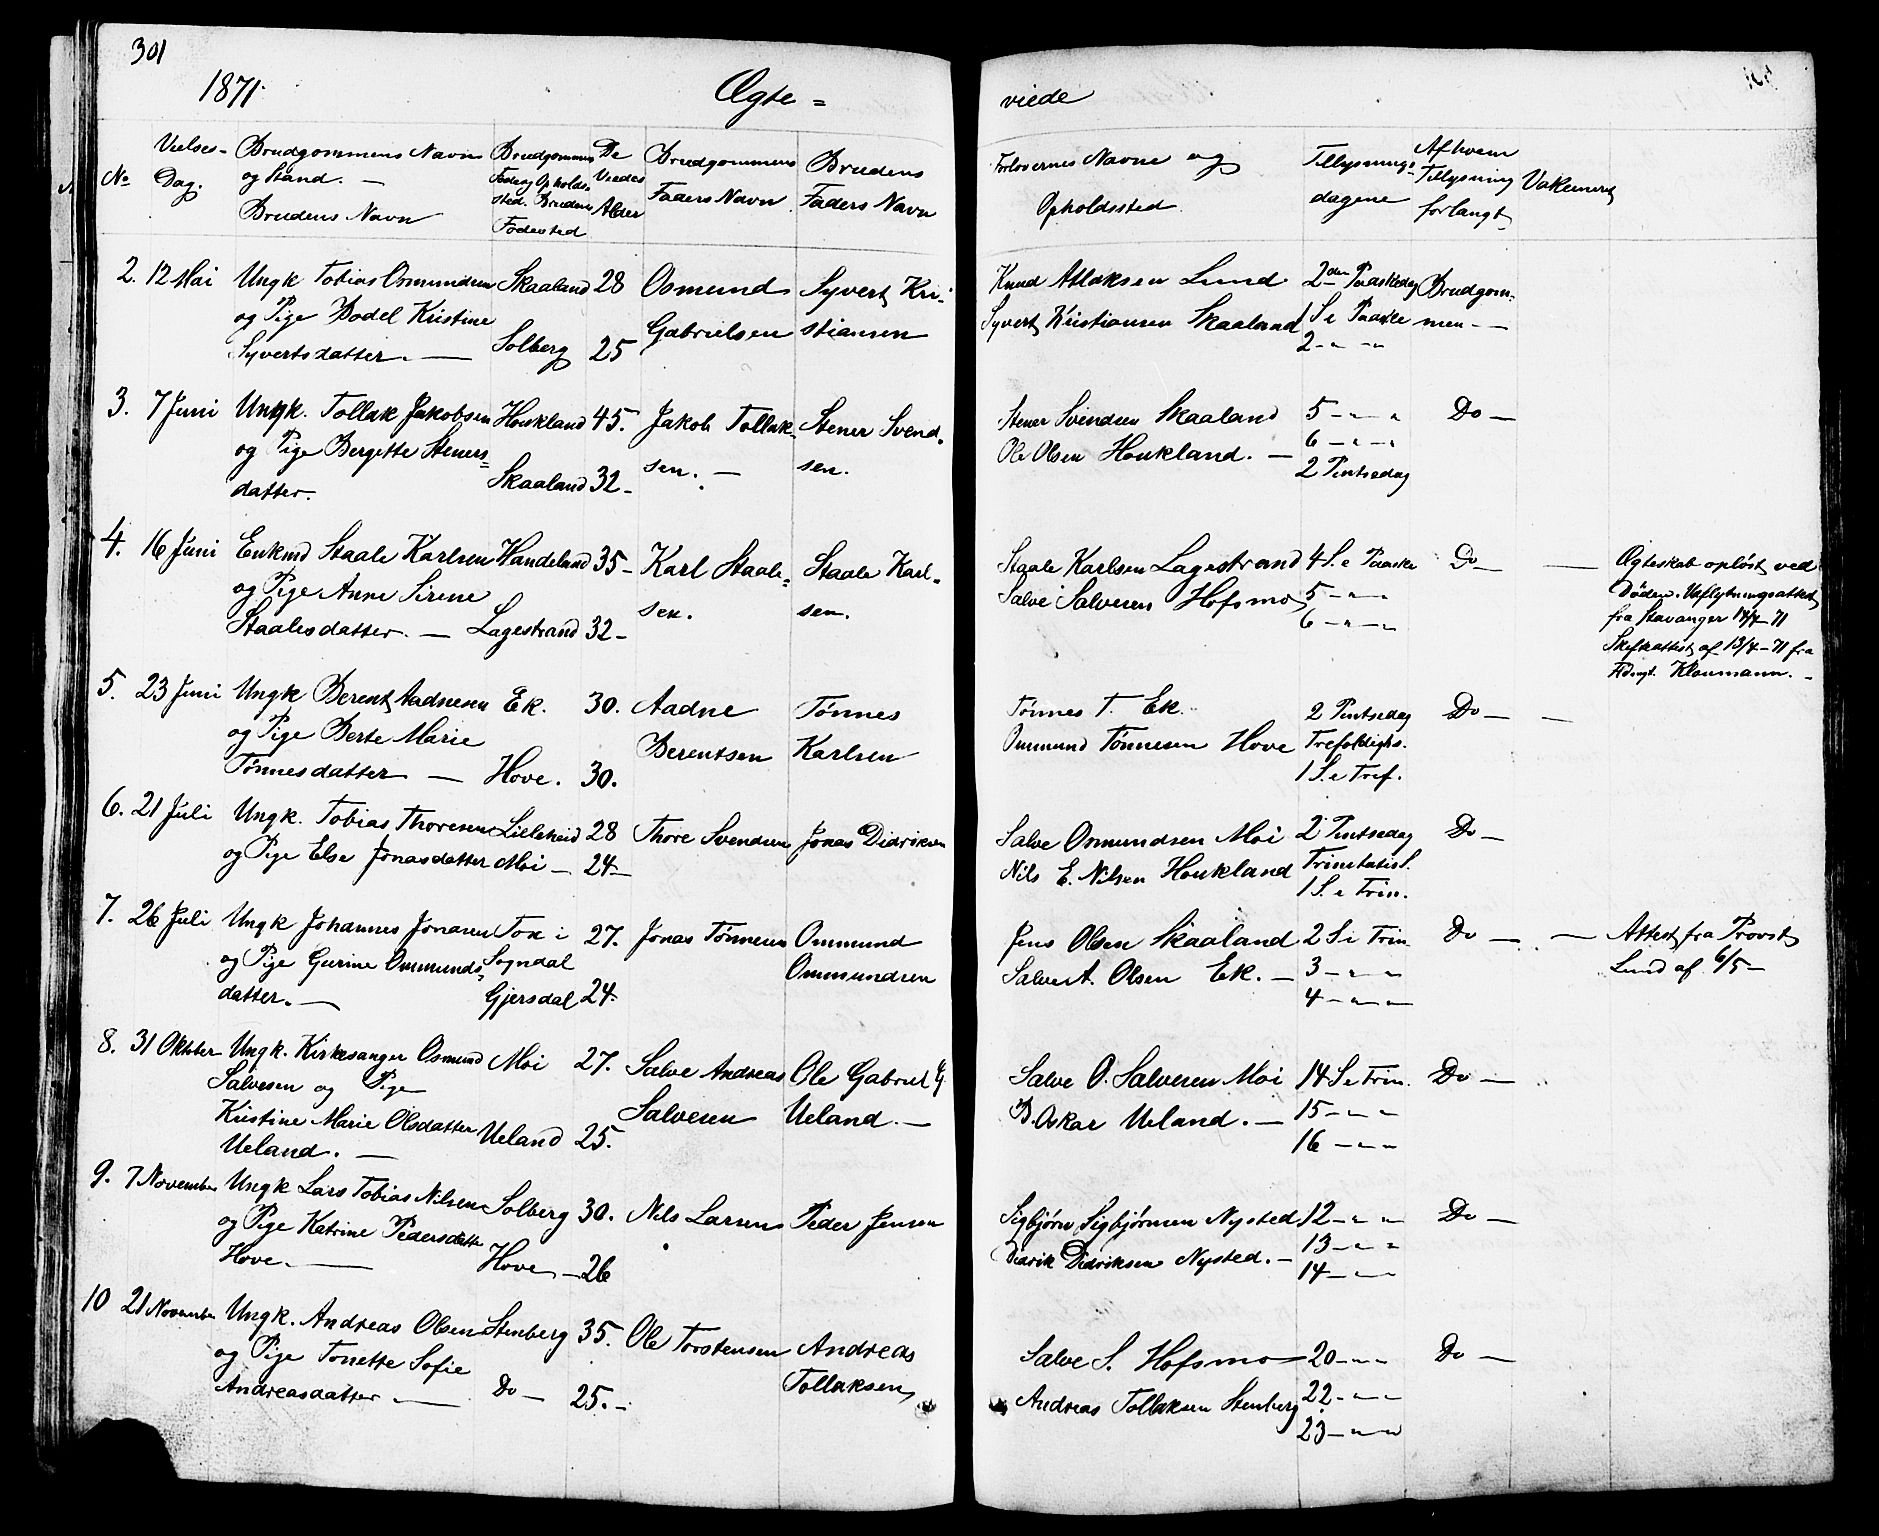 301
1871.
Ægte =
viede
No
Vielses-
Dag.
Brudgommens Navn
og Stand. —
Brudens Navn
Brudgommens
Fødeog Opholds-
sted. Brudens
Fødested
De
Viedes
Alder
Brudgommens
Faders Navn
Brudens
Faders Navn
Forlovernes Navne og
Opholdssted.
Tillysnings-
dagene
Af hvem
Tillysning
forlangt
Vakcineret
2. 12 Mai Ungk Tobias Osmundsen Skaaland 28 Osmund Syvert Kri- Knud Atlaksen Lund 2den Paaskedag Brudgom-
og Pige Bodel Kristine Gabrielsen stiansen Syvert Kristiansen Skaaland 1 S. e Paaske men - -
Syvertsdatter. — Solberg 25 2 - " - "
3. 7 Juni Ungk. Tollak Jakobsen Houkland 45. Jakob Tollak- Stener Svend- Stener Svendsen Skaaland 5 - " - " Do —
og Pige Bergette Steners= sen. — sen. Ole Olsen Houkland. — 6 - " - "
datter. Skaaland 32 - 2 Pintsedag
4. 16 Juni Enkmd Staale Karlsen Handeland 35 - Karl Staale= Staale Karl- Staale Karlsen Lagestrand 4 S. e Paaske Do — — Ægteskab opløst ved
og Pige Anne Sirene sen. sen. Salve Salvesen Hofsmo 5 - " - " Døden. Udflytningsattest
Staalesdatter. — Lagestrand 32 - 6 - " - " fra Stavanger 14/4 - 71
Skifteattest af 13/4 - 71 fra
Kloumann. -
5. 23 Juni Ungk Berent Aadnesen Ek. 30. Aadne Tønnes Tønnes T. Ek. 2 Pintsedag Do — —
og Pige Berte Marie Berentsen Karlsen Ommund Tønnesen Hove Trefoldighs.
Tønnesdatter — Hove. 30. 1 S. e Tref.
6. 21 Juli Ungk. Tobias Thoresen Lilleheid 28 Thore Svendsen Jonas Didriksen Salve Osmundsen Moi 2 Pintsedag Do —
og Pige Else Jonasdatter Moi — 24 - Nils E. Nilsen Houkland Trinitatis S.
1 S. e Trin.
7. 26 Juli Ungk Johannes Jonasen Fox i 27. Jonas Tønnesen Ommund Jens Olsen Skaaland 2 S e Trin. Do — — Attest fra Provst
og Pige Gurine Ommunds- Sogndal Ommundsen Salve A. Olsen Ek. — 3 - " - " Lund af 6/5 -
datter. — Gjersdal 24. 4 - " - "
8. 31 Oktober Ungk. Kirkesanger Osmund Moi 27. Salve Andreas Ole Gabriel G. Salve O. Salvesen Moi 14 S e Trin. Do —
Salvesen og Pige Salvesen Ueland. — B. Oskar Ueland. — 15 - " - "
Kristine Marie Olsdatter Ueland 25. 16 - " - "
Ueland. —
9. 7 November Ungk Lars Tobias Nilsen Solberg 30. Nils Larsen Peder Jensen Sigbjørn Sigbjørnsen Nysted 12 - " - " Do —
og Pige Katrine Pedersdatter Didrik Didriksen Nysted. — 13 - " - "
Hove. — Hove — 26 14 - " - "
10 21 November Ungk. Andreas Olsen Stenberg 35. Ole Torstensen Andreas Salve S. Hofsmo 20 - " - " Do —
og Pige Tonette Sofie Tollaksen Andreas Tollaksen Stenberg 22 - " - "
Andreasdatter — Do — 25. - 23 - " - "